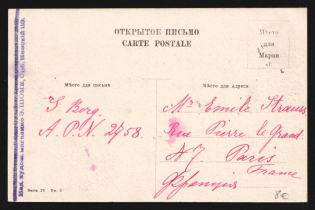 ОТКРЫТОЕ ПИСЬМО
CARTE POSTALE
Мѣсто
для
Марки
Мѣсто для письма
Мѣсто для Адреса
S. Berg.
A. P. N. 2758.
Mr Emile Strauss
Rue Pierre le Grand
N 7. Paris
France
8€